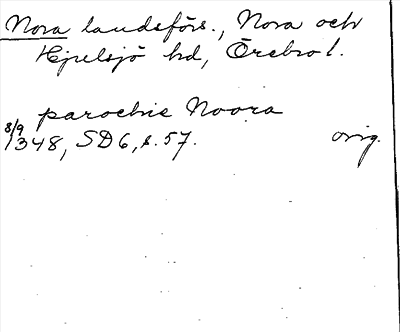 Nora landsförs., Nora och
Hjulsjö hd, Örebro l.
parochie Noora
8/9
1348, SD6, s. 57. orig.